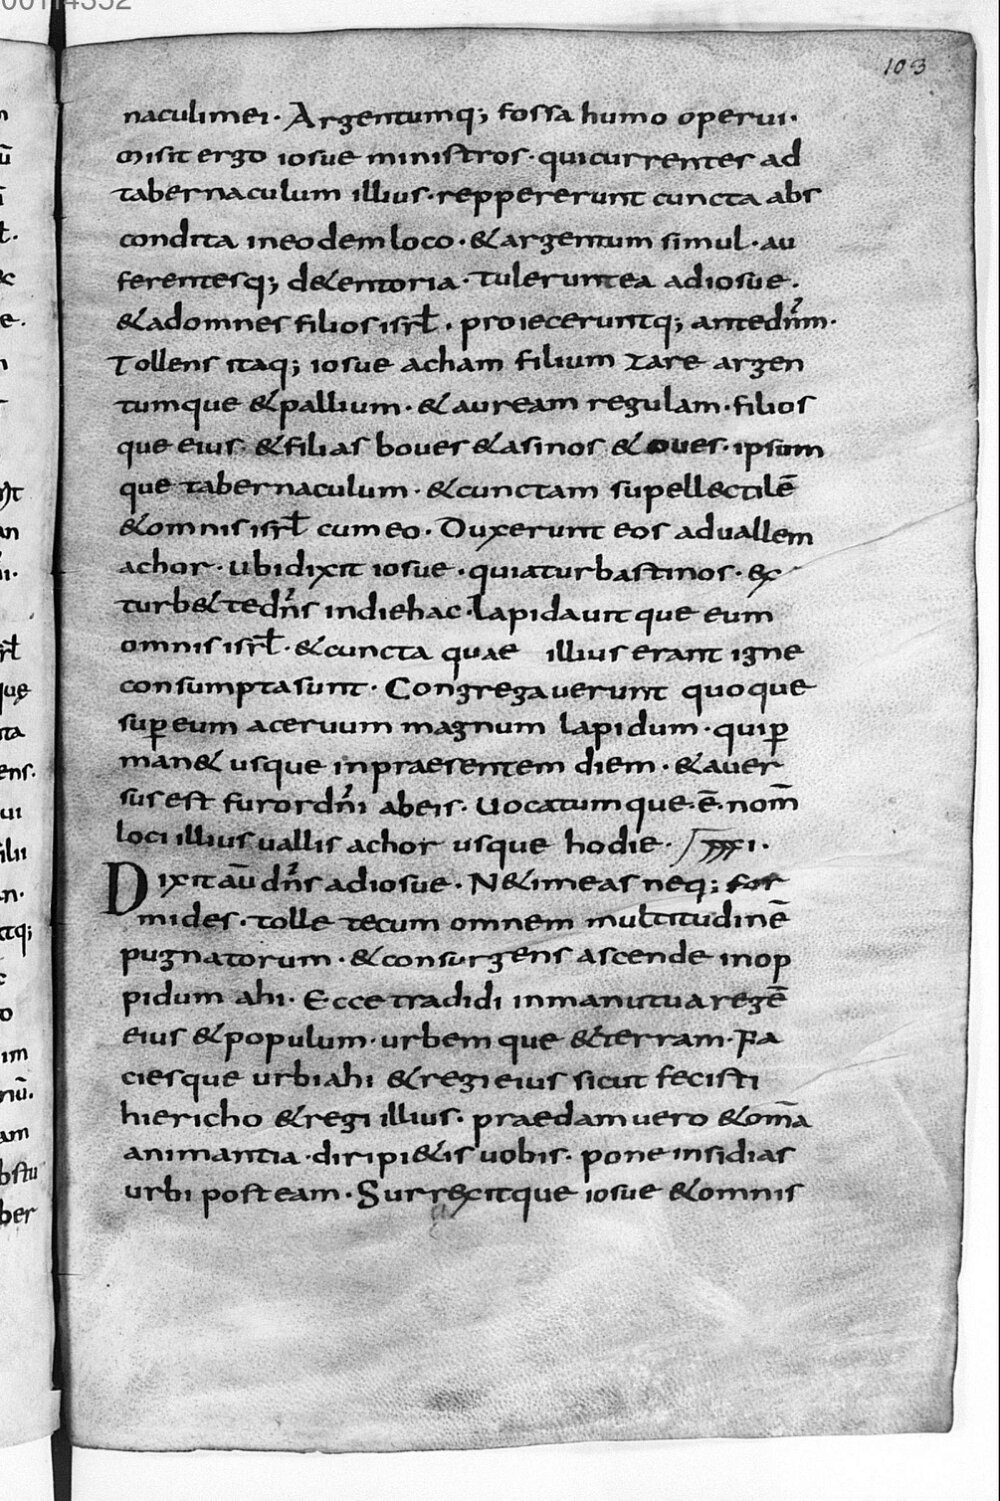 103
naculi mei · Argentumq; fossa humo operui ·
misit ergo iosue ministros · qui currentes ad
tabernaculum illius · reppererunt cuncta abs
condita in eodem loco · & argentum simul · au
ferentesq; de tentoria · tulerunt ea ad iosue .
& ad omnes filios isrł . proieceruntq; ante dñm ·
Tollens itaq; iosue acham filium zare argen
tumque & pallium · & auream regulam · filios
que eius · & filias boues & asinos & oues · ipsum
que tabernaculum · & cunctam supellectilē
& omnis isrł cum eo · Duxerunt eos ad uallem
achor · Ubi dixit iosue · quia turbasti nos · ex
turb& te dñs in die hac · Lapidauit que eum
omnis isrł · & cuncta quae illius erant igne
consumpta sunt · Congregauerunt quoque
sup̱ eum aceruum magnum lapidum · qui p̱
man& usque in praesentem diem · & auer
sus est furor dñi ab eis · Uocatumque · ē · nom̄
loci illius uallis achor usque hodie ·
Dixit aū dñs ad iosue · N& imeas neq; for
mides · tolle tecum omnem multitudinē
pugnatorum · & consurgens ascende in op
pidum ahi · Ecce tradidi in manu tua regē
eius & populum · urbem que & terram · Fa
ciesque urbi ahi & regi eius sicut fecisti
hiericho & regi illius · praedam uero & om̄a
animantia · diripi&is uobis · pone insidias
urbi post eam · Surrexitque iosue & omnis